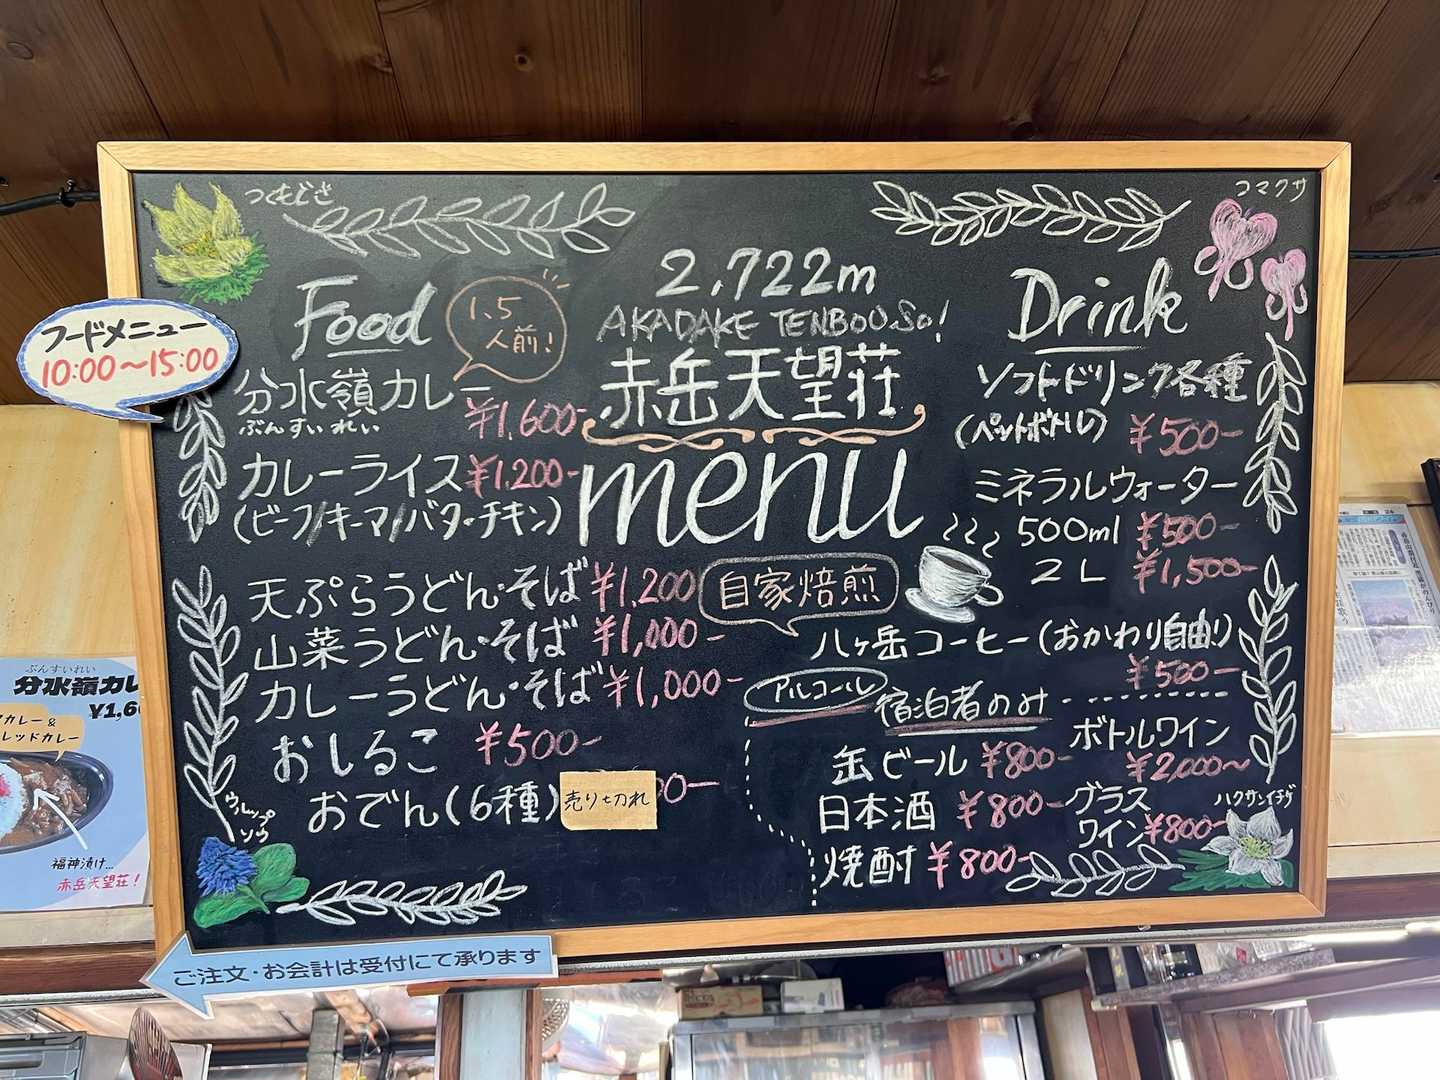 つくもぐさ
コマクサ
2,722m
AKADAKE TENBOU So!
赤岳天望荘
menu
フードメニュー
10:00〜15:00
Food
1.5
人前!
分水嶺カレー
ぶんすいれい
¥1,600-
カレーライス ¥1,200-
(ビーフ/キーマ/バターチキン)
天ぷらうどん・そば ¥1,200
山菜うどん・そば ¥1,000-
カレーうどん・そば ¥1,000-
おしるこ ¥500-
おでん(6種) 売り切れ 00-
ウルップ
ソウ
Drink
ソフトドリンク各種
(ペットボトル) ¥500-
ミネラルウォーター
500ml ¥500-
2L ¥1,500-
自家焙煎
八ヶ岳コーヒー(おかわり自由!)
¥500-
アルコール 宿泊者のみ
缶ビール ¥800-
日本酒 ¥800-
焼酎 ¥800-
ボトルワイン
¥2,000〜
グラス
ワイン ¥800-
ハクサンイチゲ
ご注文・お会計は受付にて承ります
ぶんすいれい
分水嶺カレ
¥1,6
カレー&
レッドカレー
福神漬け…
赤岳天望荘!